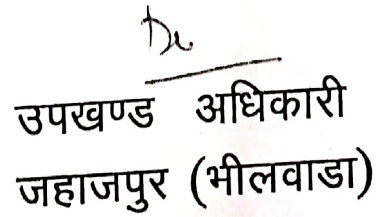 उपखण्ड अधिकारी
जहाजपुर (भीलवाडा)